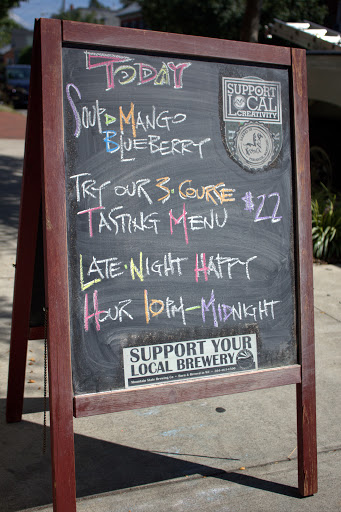 TODAY
SUPPORT
LOCAL
CREATIVITY
SOUP MANGO
BLUEBERRY
TRY OUR 3-COURSE
TASTING MENU $22
LATE-NIGHT HAPPY
HOUR 10PM-MIDNIGHT
SUPPORT YOUR
LOCAL BREWERY